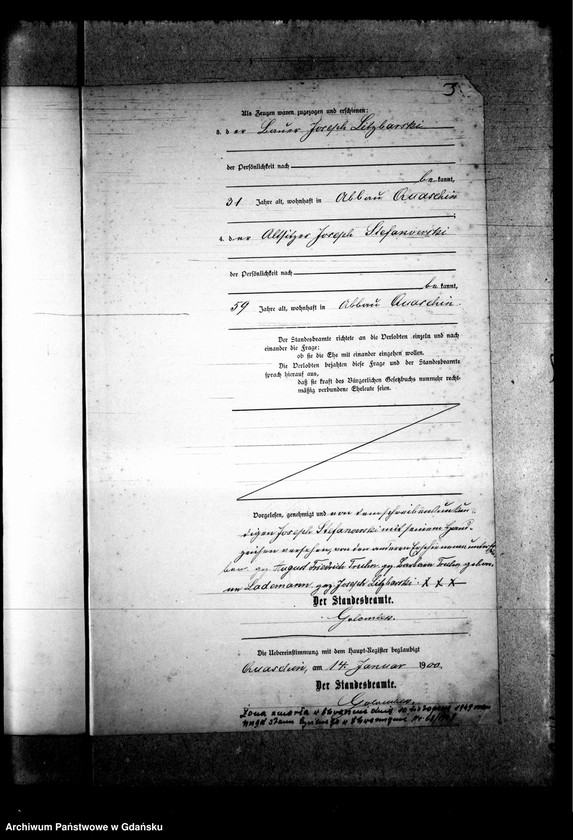 3.
Als Zeugen waren zugezogen und erschienen:
3. der Bauer Joseph Litzbarski
der Persönlichkeit nach
bekannt,
31 Jahre alt, wohnhaft in Abbau Quaschin
;
4. der Altsitzer Joseph Stefanowski
der Persönlichkeit nach
bekannt,
59 Jahre alt, wohnhaft in Abbau Quaschin.
Der Standesbeamte richtete an die Verlobten einzeln und nach
einander die Frage:
ob sie die Ehe mit einander eingehen wollen.
Die Verlobten bejahten diese Frage und der Standesbeamte
sprach hierauf aus,
daß sie kraft des Bürgerlichen Gesetzbuchs nunmehr recht-
mäßig verbundene Eheleute seien.
Vorgelesen, genehmigt und von dem schreibensunkun-
digen Joseph Stefanowski mit seinem Hand-
zeichen versehen, von den anderen Erschienenen unterschrie-
ben. gez. August Friedrich gez. Barbara gebore-
ne Lademann gez. Joseph Litzbarski. X X X
Der Standesbeamte.
Golombek.
Die Uebereinstimmung mit dem Haupt-Register beglaubigt
Quaschin, am 14. Januar 1900.
Der Standesbeamte.
Golombek.
Żona zmarła w dnia 10 listopada 1969
Urząd Stanu Cywilnego w
Archiwum Państwowe w Gdańsku